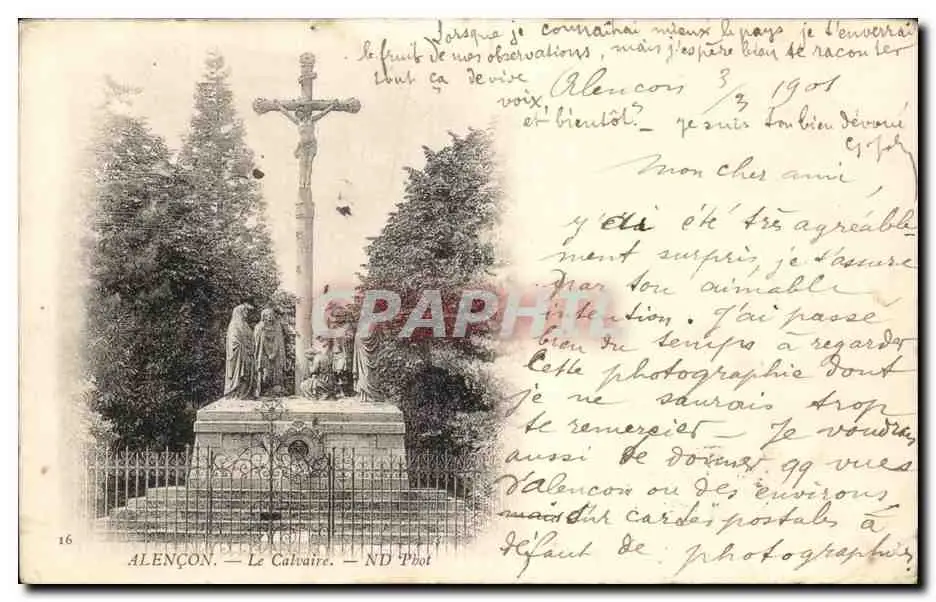 Lorsque je connaîtrai mieux le pays, je t'enverrai
le fruit de mes observations, mais j'espère bien te raconter
tout ça de vive
voix,
Alençon 3/3 1901
et bientôt. – Je suis ton bien dévoué
Mon cher ami,
J'ai été très agréable-
ment surpris, je t'assure
par ton aimable
intention. J'ai passé
bien du temps à regarder
cette photographie dont
je ne saurais trop
te remercier – Je voudrais
aussi te donner qq vues
d'Alençon ou des environs
sur cartes postales à
défaut de photographies.
CPAPHIL
16
ALENÇON. — Le Calvaire. — ND Phot